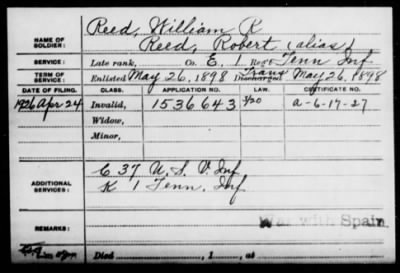 Reed, William R
NAME OF SOLDIER: Reed, Robert (alias)
SERVICE: Late rank, Co. E, 1 Reg't Tenn Inf.
TERM OF SERVICE: Enlisted May 26, 1898 Discharged Trans May 26, 1898
DATE OF FILING. CLASS. APPLICATION NO. LAW. CERTIFICATE NO.
1926 Apr 24 Invalid, 1536643 3/20 a-6-17-27
Widow,
Minor,
C 37 U.S. V. Inf
ADDITIONAL SERVICES: K 1 Tenn. Inf.
War with Spain
REMARKS:
Died , 1 , at